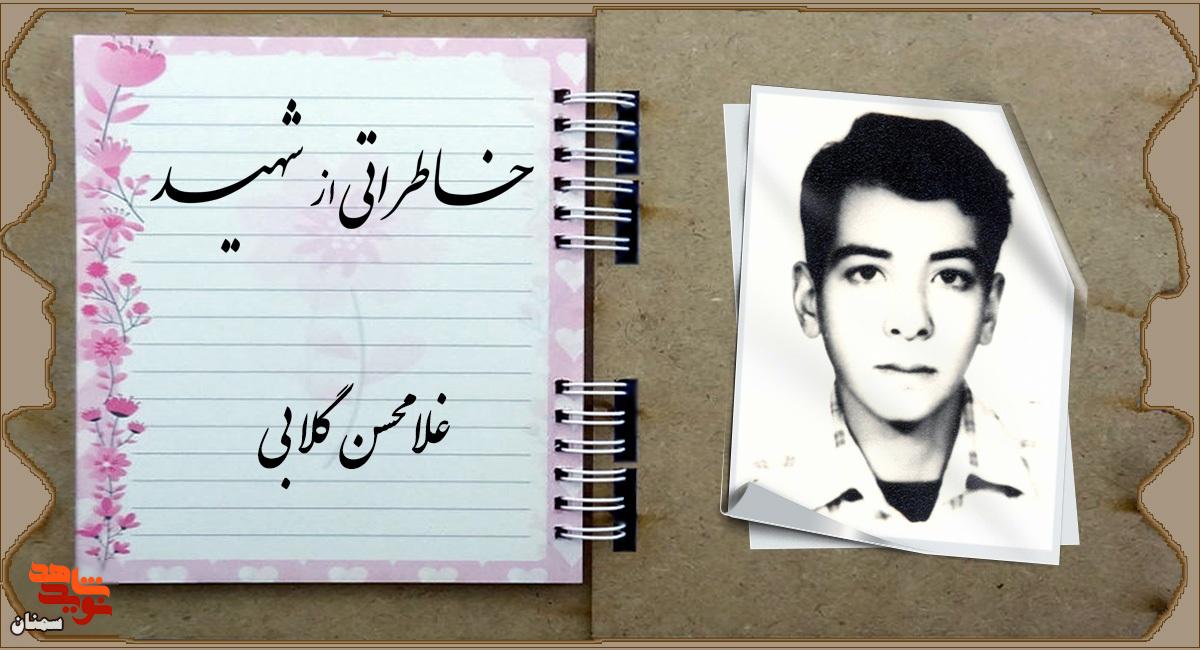 خاطراتی از شهید
غلامحسن گلابی
نوید شاهد
سمنان